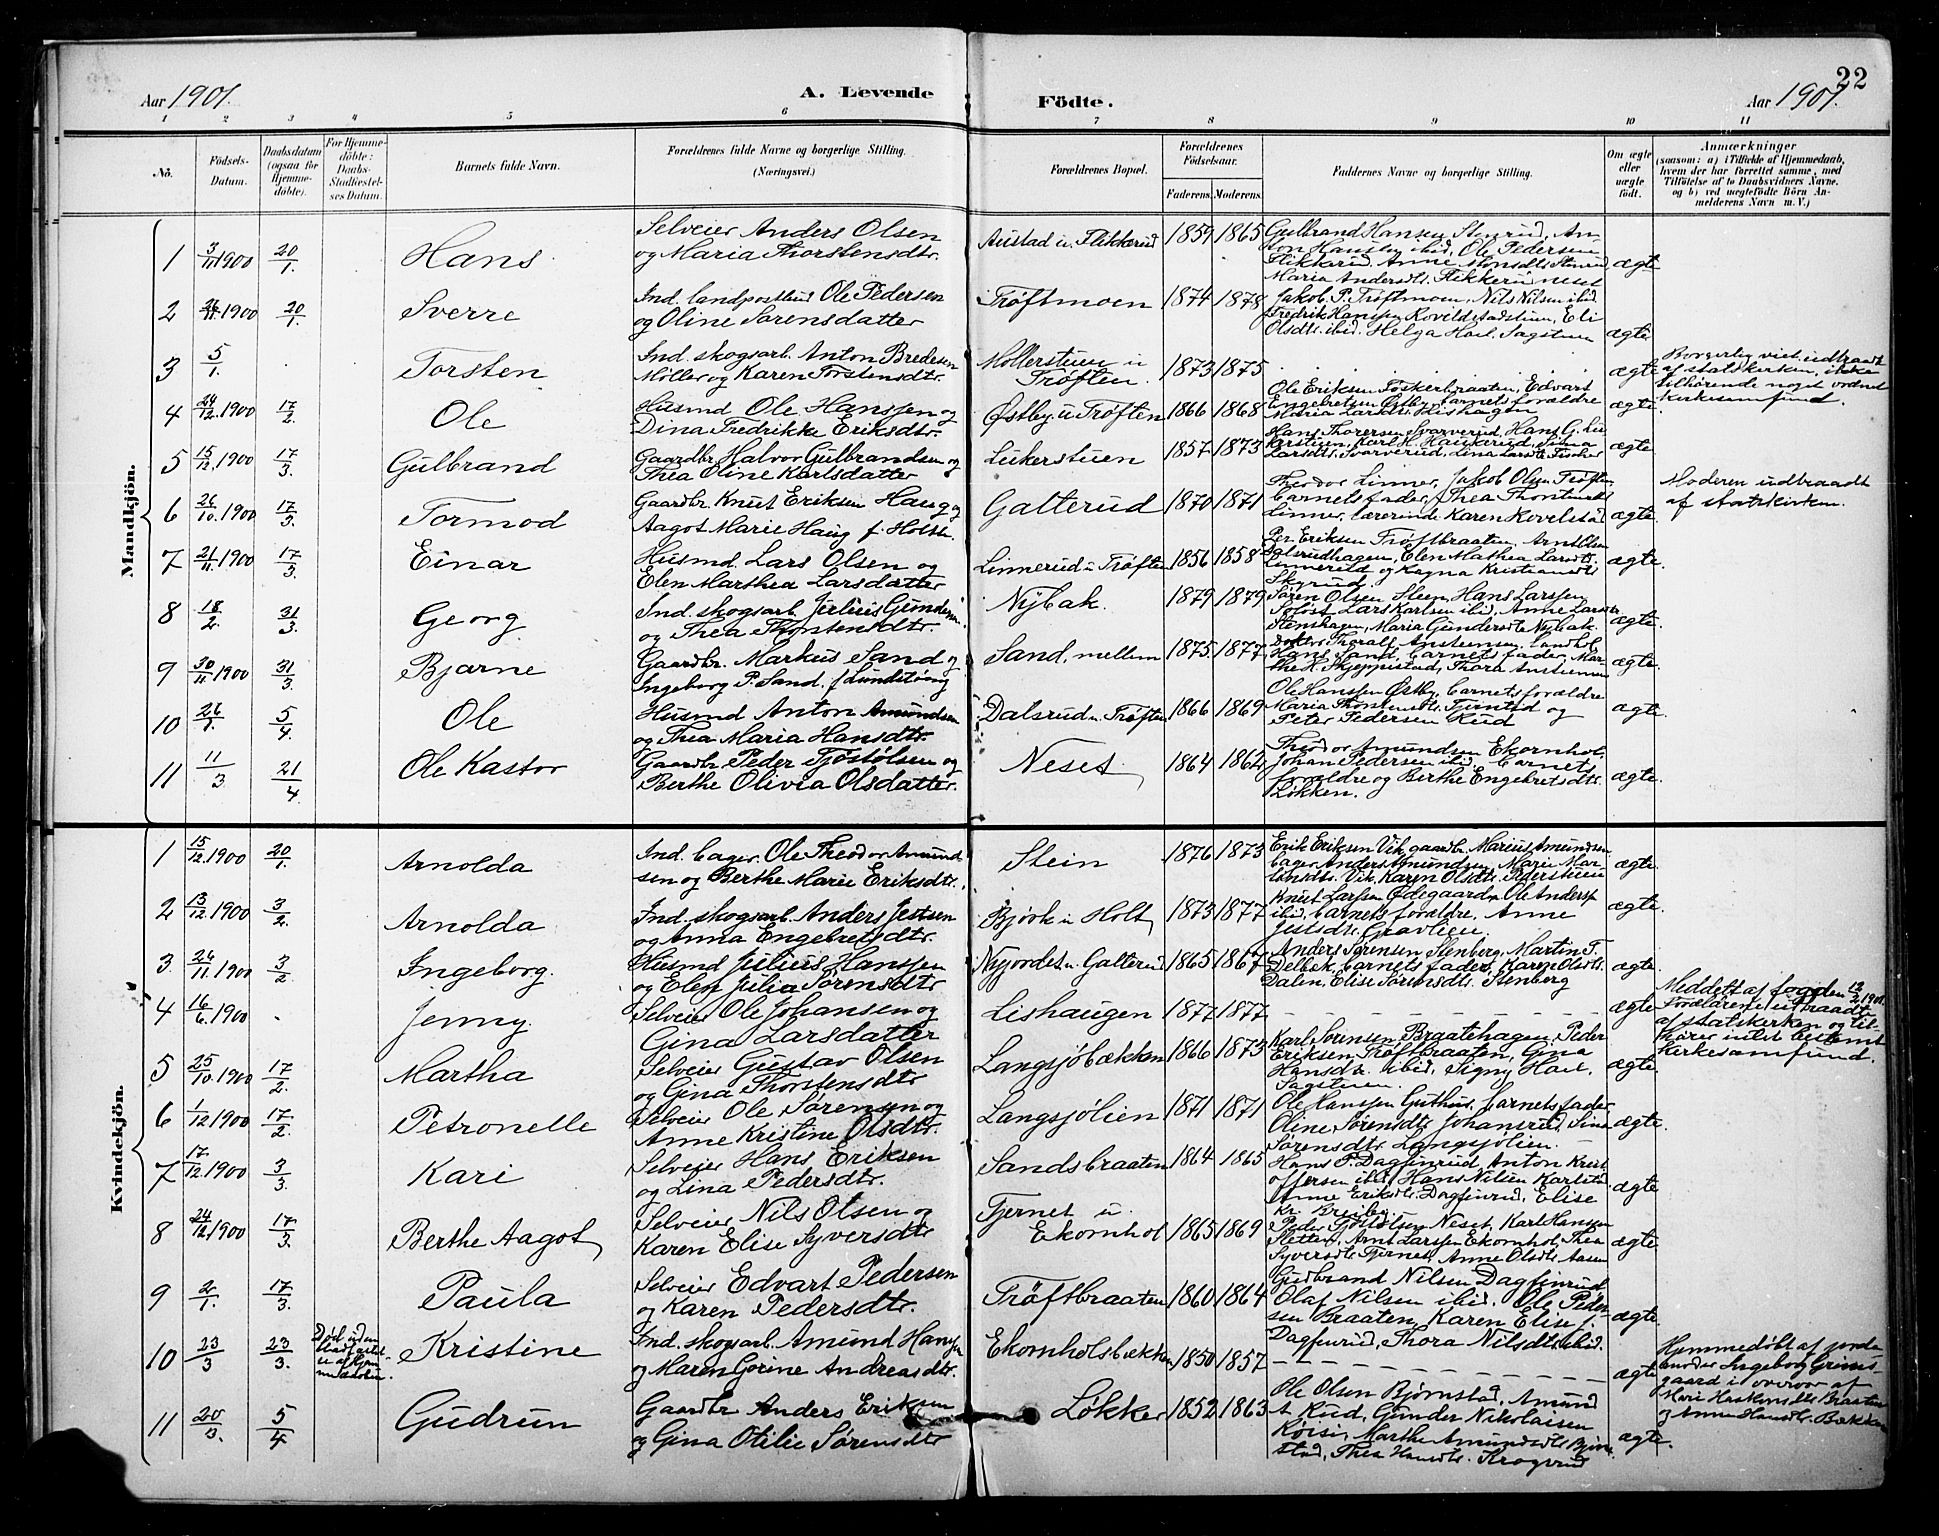 22
Aar 1901.
A. Levende
Födte.
Aar 1901.
1 2 3 4 5 6 7 8 9 10 11
No.
Födsels-
Datum.
Daabsdatum
(ogsaa for
Hjemme-
döbte).
For Hjemme-
döbte:
Daabs-
Stadfæstel-
ses Datum.
Barnets fulde Navn.
Forældrenes fulde Navne og borgerlige Stilling.
(Næringsvei.)
Forældrenes Bopæl.
Forældrenes
Födselsaar.
Faderens. Moderens.
Faddernes Navne og borgerlige Stilling.
Om ægte
eller
uægte
födt.
Anmærkninger
(saasom: a) i Tilfælde af Hjemmedaab,
hvem der har forrettet samme, med
Tilföielse af to Daabsvidners Navne.
og b) ved uegtefödte Börn An-
melderens Navn m. V.)
Mandkjön.
1 3/11 1900 20/1. Hans
Selveier Anders Olsen
og Maria Thorstensdtr.
Austad u. Flikkerud 1859 1865
Gulbrand Hansen Stenrud, An-
ton Hansen ibid, Ole Pedersen
Flikkerud, Anne
Maria Andersdtr. Flikkerud
ægte
2 11. 1900 20/1. Sverre
Ind. landpostbud Ole Pedersen
og Oline Sørensdatter
Trøftmoen 1874 1878
Jakob P. Trøftmoen, Nils Nilsen ibid
Fredrik Hansen
Olsdtr. ibid. Helga Hoel. Sagstuen
ægte
3 5/1. Torsten
Ind. skogsarb. Anton Bredesen
Møller og Karen Torstensdtr.
Møllerstuen u
Trøften. 1873 1875
ægte
Borgerlig viet, udtraadt
af statskirken, ikke
tilhørende noget ordnet
kirkesamfund.
4 24/12. 1900 17/2. Ole
Husmd Ole Hanssen og
Dina Fredrikke Eriksdtr.
Østby u Trøften 1866 1868
Ole Eriksen Edvart
Engebretsen Østby, barnets forældre
Maria Larsdtr.
ægte
5 15/12. 1900 17/3. Gulbrand
Gaardbr Halvor Gulbrandsen og
Thea Oline Karlsdatter
Lukerstuen 1857 1873
Hans Thoresen Svarverud, Hans G. Lu-
kerstuen, Karl H. Haukerud,
Larsdtr. Svarverud, Lina Larsdtr. Fischer
ægte
6 26/10. 1900 17/3. Tormod
Gaardbr. Knut Eriksen Haug og
Aagot Marie Haug f. Holst.
Galterud 1870 1871
Theodor Linner, Jakob Olsen Trøften
barnets fader, Thea
Linner, lærerinde Karen
ægte.
Moderen udtraadt
af statskirken.
7 21/11. 1900 17/3. Einar
Husmd. Lars Olsen og
Elen Marthea Larsdatter
Linnerud u Trøften 1856 1858
Per Eriksen Trøftbraaten, Arnt Olsen
Dalsrudhagen, Elen Mathea Larsdtr.
Linnerud og Magna Kristiansdtr
Skyrud.
ægte.
8 18/2. 31/3. Georg
Ind. skogsarb. Julius Gundersen
og Thea Thorstensdtr.
Nybak. 1879 1879
Søren Olsen Steen, Hans Larssen
Soløst, Lars Karlsen ibid, Anne Larsdtr
Stenshagen, Maria Gundersdtr Nybak.
ægte.
9 30/11. 1900 31/3. Bjarne
Gaardbr. Markus Sand og
Ingeborg P. Sand. f
Sand, mellem 1875 1877
Thoralf Anstensen,
Hans Sand, barnets fader, Mar-
the H. Skjeppestad, Thora Anstensen
ægte.
10 26/1. 5/4. Ole
Husmd Anton Amundsen
og Thea Maria Hansdtr.
Dalsrud u. Trøften 1866 1869
Ole Hanssen Østby, barnets forældre
Maria Thorstensdtr. og
Peter Pedersen Rud
ægte.
11 11/3 21/4 Ole Kastor
Gaardbr Peder Tjøstølsen og
Berthe Olivia Olsdatter.
Neset, 1864 1862
Theodor Amundsen Ekornhol,
Johan Pedersen ibid. barnets
forældre og Berthe Engebretsdtr.
Løkken.
ægte.
Kvindekjön.
1 15/12. 1900 20/1. Arnolda
Ind. bager. Ole Theodor Amund-
sen og Berthe Marie Eriksdtr.
Stein 1876 1873
Erik Eriksen Vik gaardbr. Marius Amundsen
bager Anders Amundsen, Marie Mar-
Vik, Karen Olsdtr. Pederstuen
ægte.
2 13/12. 1900 3/2. Arnolda
Ind. skogsarb. Anders Jestsen
og Anna Engebretsdtr.
Bjørk u Holt 1873 1877
Knut Larssen Ødegaarden Ole Anderss.
ibid, barnets forældre, Anne
Jestsdtr. Gravlien.
ægte.
3 26/11. 1900 3/2 Ingeborg.
Husmd Julius Hanssen
og Elen Julia Sørensdtr
Nyjordet u. Galterud 1865 1867
Anders Sørensen Stenberg, Martin T.
Delbæk, barnets fader, Karen Olsdtr.
Dalen, Elise Sørensdtr. Stenberg
ægte.
4 16/6. 1900 Jenny.
Selveier Ole Johansen og
Gina Larsdatter
Lishaugen 1877 1877
ægte
Meddelt af fogden 13/2 1901.
Forældrene udtraadt
af statskirken og til-
hører intet bestemt
kirkesamfund.
5 25/10. 1900 17/2. Martha
Selveier Gustav Olsen
og Gina Thorstensdtr
Langsjøbækken 1866 1873
Karl Sørensen Braatehagen, Peder
Eriksen Trøftbraaten, Gina
Hansdtr. ibid, Signy Hoel.
Sagstuen.
ægte.
6 1/12 1900 17/2. Petronelle
Selveier Ole Sørensen og
Anne Kristine Olsdtr.
Langsjølien 1871 1871
Ole Hanssen Guthus, barnets fader
Oline Sørensdtr Johansrud, Sina
Sørensdtr Langsjølien.
ægte.
7 17/12. 1900 3/3. Kari
Selveier Hans Eriksen
og Lina Pedersdtr.
Sandsbraaten 1864 1865
Hans P. Dagfinrud, Anton Krist-
offersen ibid, Hans Nilsen
Anne Eriksdtr. Dagfinrud, Elise
Kr. Breiby.
ægte
8 24/12 1900 17/3. Berthe Aagot
Selveier Nils Olsen og
Karen Elise Syversdtr
Tjernet u.
Ekornhol 1865 1869
Peder Tjøstølsen Neset, Karl Hansen
Sletten, Arnt Larssen Ekornhol, Thea
Syversdtr Tjernet, Anne Olsdtr. Aasen
ægte
9 2/1. 17/3. Paula
Selveier Edvart Pedersen
og Karen Pedersdtr.
Trøftbraaten 1860 1864
Gudbrand Nilsen Dagfinrud,
Olaf Nilsen ibid. Ole Peder-
sen Braaten, Karen Elise
Dagfinrud, Thora Nilsdtr. ibid.
ægte
10 23/3 23/3. Død uden
Kristine
Ind. skogsarb. Amund Hanssen
og Maren Gorine Andreasdtr.
Ekornholsbækken 1850 1857
ægte
Hjemmedøbt af jorde-
moder Ingeborg Grims-
gaard i overvær af
Marie Haakensdtr Braaten
og Anne Hansdtr. Bækken
11 20/3. 5/4 Gudrun
Gaardbr Anders Eriksen
og Gina Otilie Sørensdtr
Løkken 1852 1863
Ole Olsen Bjørnstad, Amund
A Rud, Gunder Nikolaisen
Korsi, Marthe Amundsdtr Bjørn-
stad, Thea Hansdtr. Krogsrud
ægte.